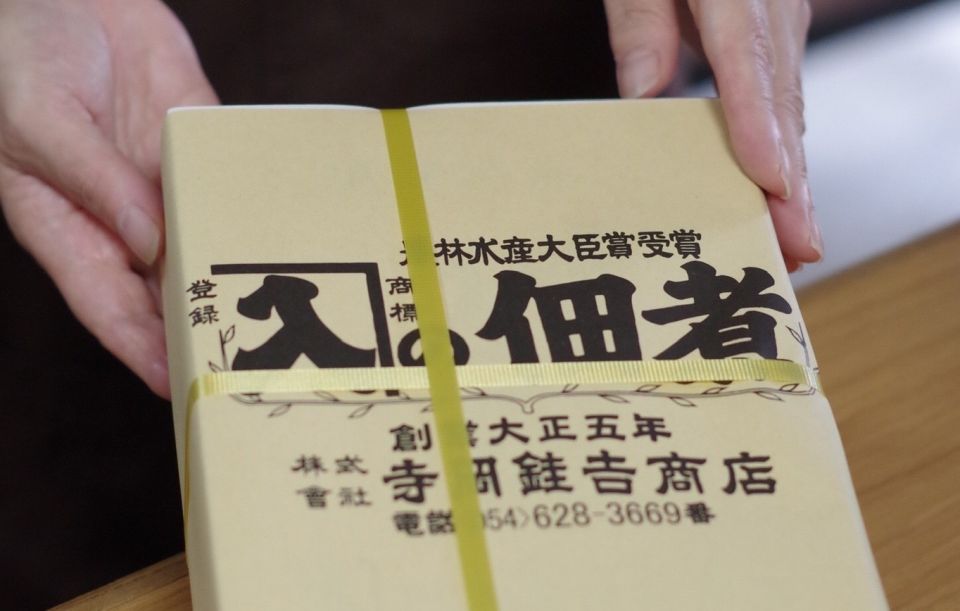 農林水産大臣賞受賞
登録 入 商標 の佃煮
創業大正五年
株式會社 寺岡銈吉商店
電話〈054〉628-3669番